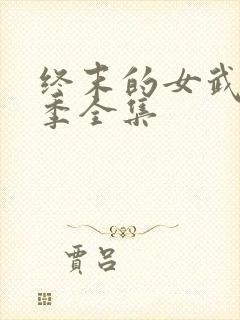 终末的女武
季全集
贾吕